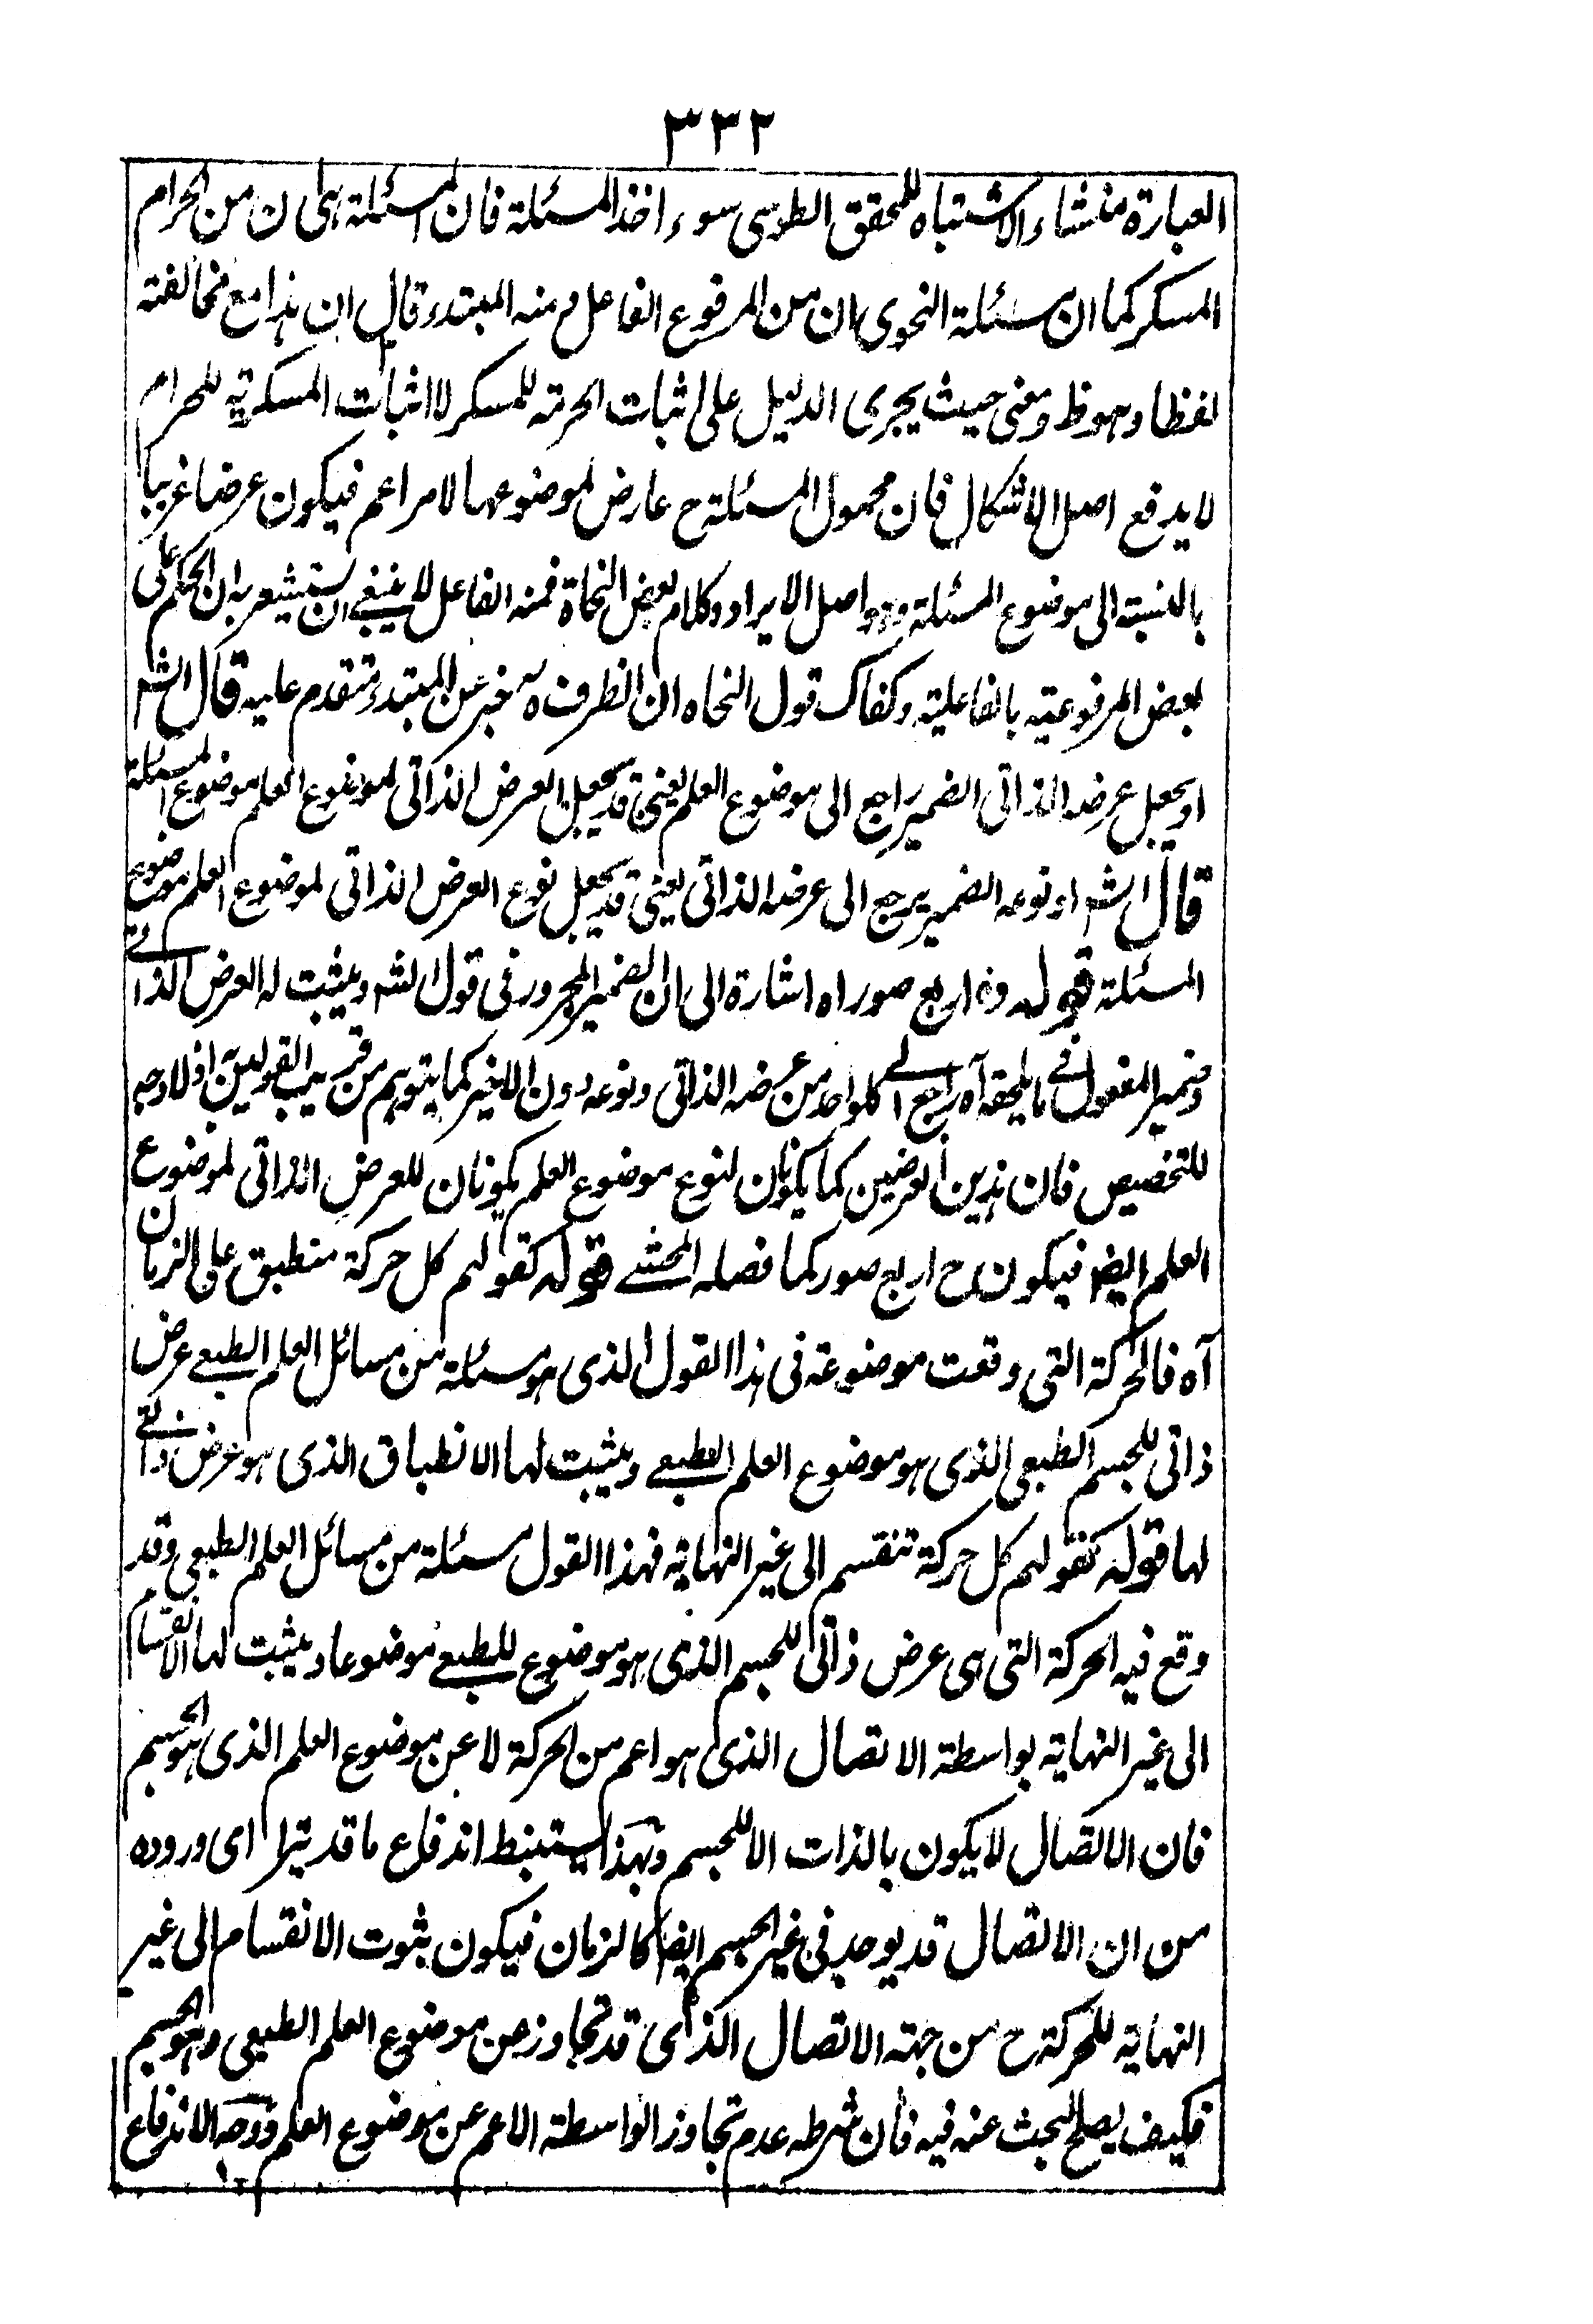 ٣٣٢
العبارة منشاء الاشتباه للمحقق الطوسى سوء اخذ المسئلة فان المسئلة هى ان من الحرام
المسكر كما ان مسئلة النحوى ان من المرفوع الفاعل و منه المبتدء وقال ان هذا مع مخالفته
لفظا وهوظ ومعنى حيث يجرى الدليل على اثبات الحرمة للمسكر لا اثبات المسكرية للحرام
لا يدفع اصل الاشكال فان محمول المسئلة ح عارض لموضوعها لامر اعم فيكون عرضا غريبا
بالنسبة الى موضوع المسئلة وهو اصل الايراد وكلام بعض النحاة فمنه الفاعل لا ينبغى ان يستشعر به ان الحكم على
بعض المرفوعية بالفاعلية وكفاك قول النحاه ان الظرف خبر عن المبتدء وتقدم عليه قال الشه
او يجعل عرضه الذاتى الضمير راجع الى موضوع العلم يعنى قد يجعل العرض الذاتى لموضوع العلم موضوع المسئلة
قال الشه او نوعه الضمير يرجع الى عرضه الذاتى يعنى قد يجعل نوع العرض الذاتى لموضوع العلم موضوع
المسئلة قوله وه اربع صور اه اشارة الى ان الضمير المجرور فى قول الشه ويثبت له العرض الذاتى
وضمير المفعول فى ما يلحقه آه راجع الى كلواحد من عرضه الذاتى ونوعه دون الاخير كما يتوهم من قريب القولين اذ لا وجه
للتخصيص فان هذين العرضين كما يكونان لنوع موضوع العلم يكونان للعرض الذاتى لموضوع
العلم ايضا فيكون ح اربع صور كما فصله المحشى قوله كقولهم كل حركة منطبق على الزمان
آه فالحركة التى وقعت موضوعة فى هذا القول الذى هو مسئلة من مسائل العلم الطبعى عرض
ذاتى للجسم الطبعى الذى هو موضوع العلم الطبعى ويثبت لها الانطباق الذى هو عرض ذاتى
لها قوله كقولهم كل حركة تنقسم الى غير النهاية فهذا القول مسئلة من مسائل العلم الطبعى وقد
وقع فيه الحركة التى هى عرض ذاتى للجسم الذى هو موضوع للطبعى موضوعا ويثبت لها الانقسام
الى غير النهاية بواسطة الاتصال الذى هو اعم من الحركة لا عن موضوع العلم الذى هو الجسم
فان الاتصال لا يكون بالذات الا للجسم وبهذا يستنبط اندفاع ما قد يترا اى وروده
من ان الاتصال قد يوجد فى غير الجسم ايضا كالزمان فيكون ثبوت الانقسام الى غير
النهاية للحركة ح من جهة الاتصال الذى قد تجاوز عن موضوع العلم الطبعى وهو الجسم
فكيف يصلح البحث عنه فيه فان شرطه عدم تجاوز الواسطة الاعم عن موضوع العلم ووجه الاندفاع